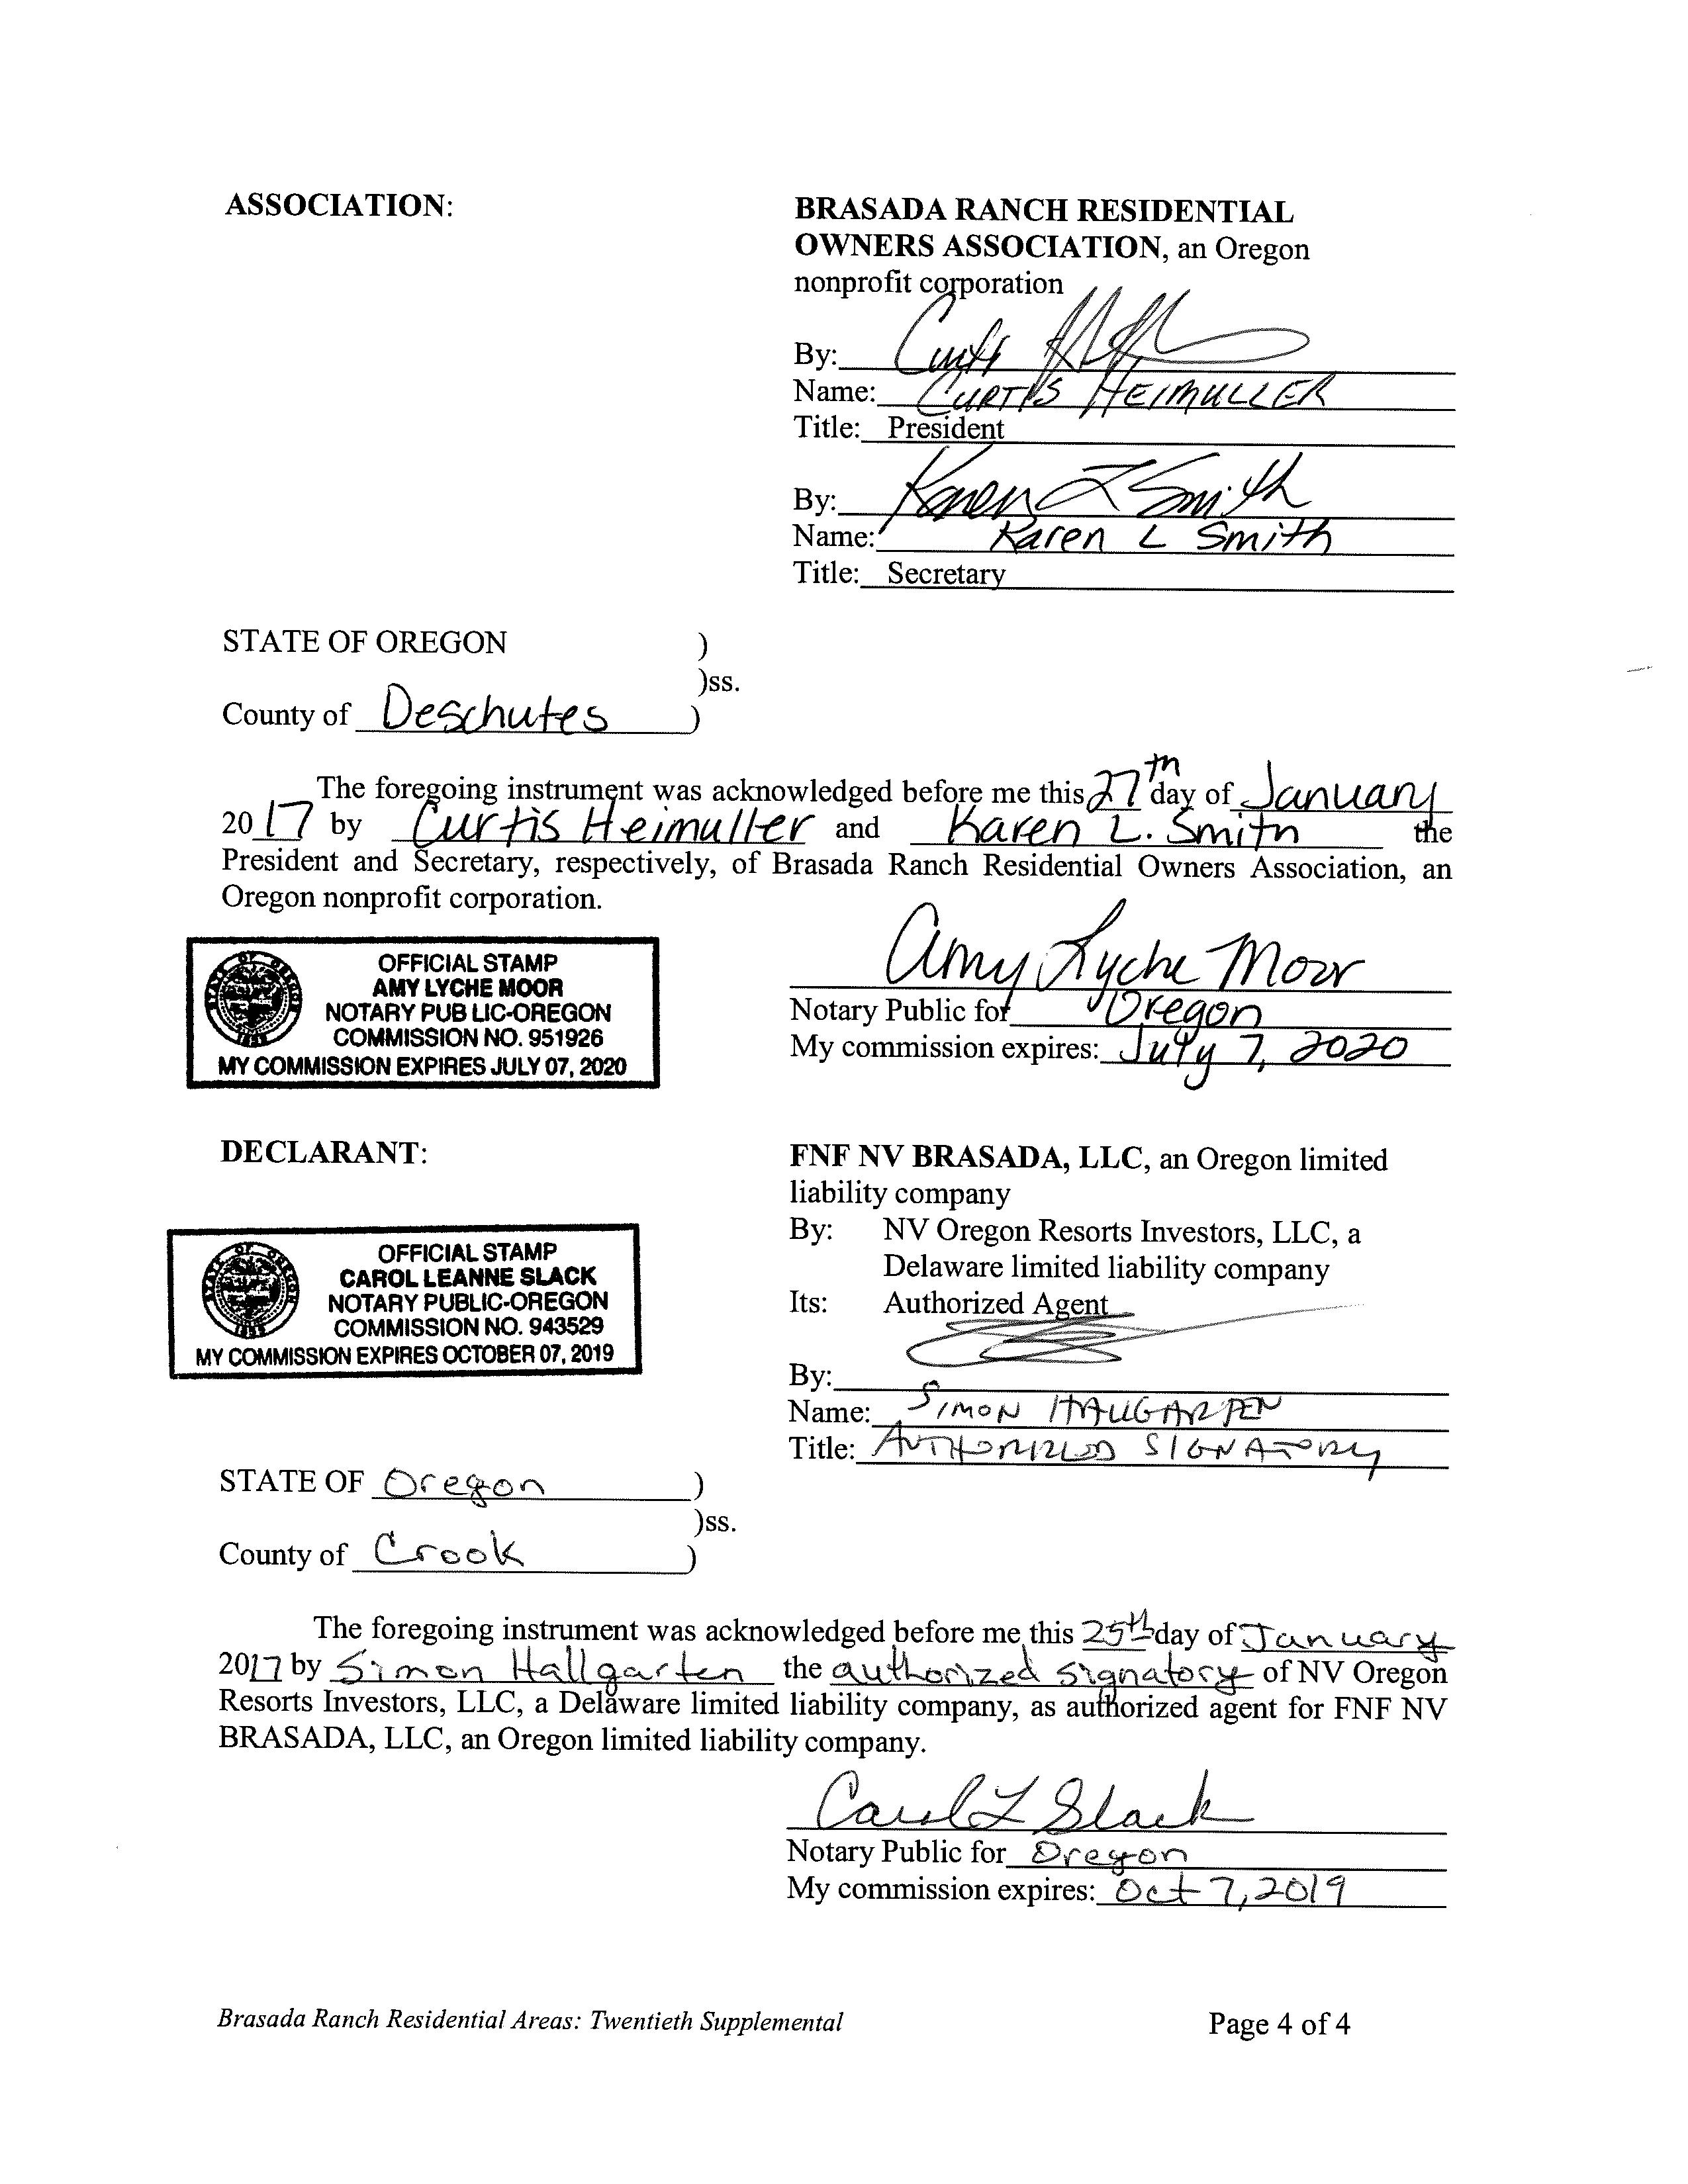 ASSOCIATION:
BRASADA RANCH RESIDENTIAL
OWNERS ASSOCIATION, an Oregon
nonprofit corporation
By:
Name: CURTIS HEIMULLER
Title: President
By: Karen L Smith
Name: Karen L Smith
Title: Secretary
STATE OF OREGON )
)ss.
County of Deschutes )
The foregoing instrument was acknowledged before me this 27th day of January
2017 by Curtis Heimuller and Karen L. Smith the
President and Secretary, respectively, of Brasada Ranch Residential Owners Association, an
Oregon nonprofit corporation.
OFFICIAL STAMP
AMY LYCHE MOOR
NOTARY PUB LIC-OREGON
COMMISSION NO. 951926
MY COMMISSION EXPIRES JULY 07, 2020
Amy Lyche Moor
Notary Public for Oregon
My commission expires: July 7, 2020
DECLARANT:
FNF NV BRASADA, LLC, an Oregon limited
liability company
By: NV Oregon Resorts Investors, LLC, a
Delaware limited liability company
Its: Authorized Agent
OFFICIAL STAMP
CAROL LEANNE SLACK
NOTARY PUBLIC-OREGON
COMMISSION NO. 943529
MY COMMISSION EXPIRES OCTOBER 07, 2019
By:
Name: SIMON HALLGARTEN
Title: AUTHORIZED SIGNATORY
STATE OF Oregon )
)ss.
County of Crook )
The foregoing instrument was acknowledged before me this 25th day of January
2017 by Simon Hallgarten the authorized signatory of NV Oregon
Resorts Investors, LLC, a Delaware limited liability company, as authorized agent for FNF NV
BRASADA, LLC, an Oregon limited liability company.
Carol L Slack
Notary Public for Oregon
My commission expires: Oct 7, 2019
Brasada Ranch Residential Areas: Twentieth Supplemental
Page 4 of 4